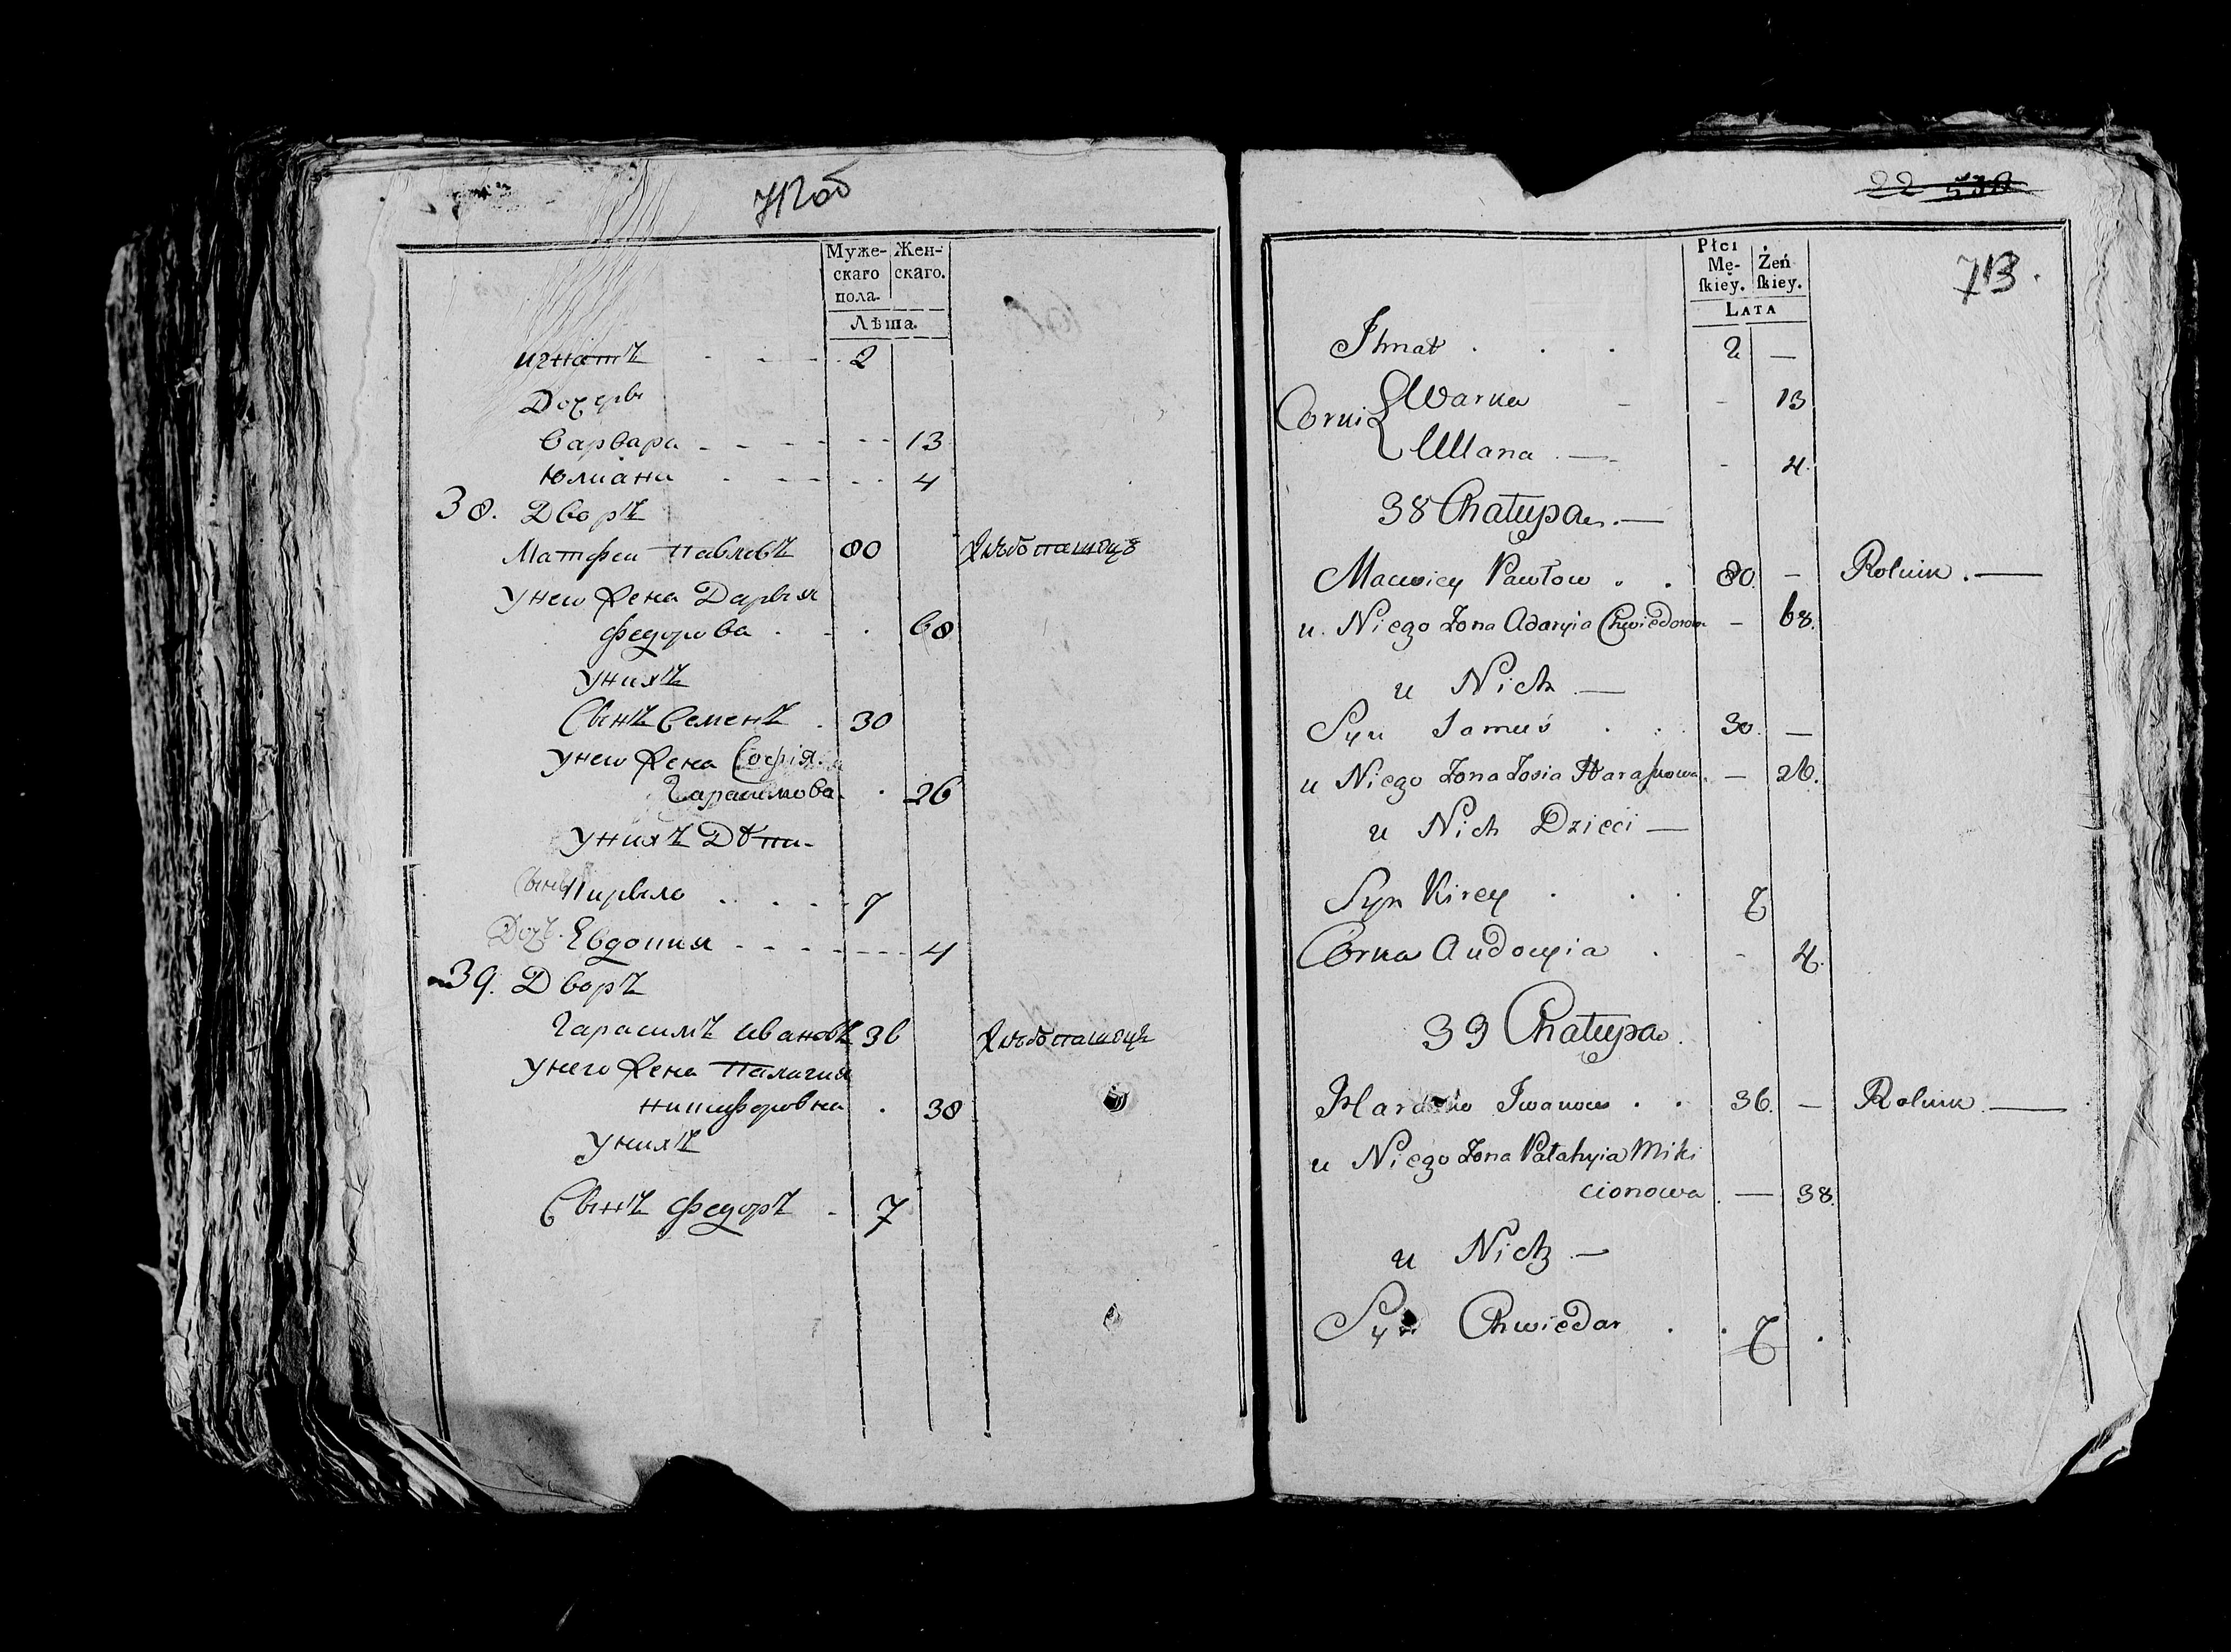 712об
Муже-
скаго
пола.
Жен-
скаго.
Лѣта.
Игнатъ 2
Дочери
Варвара 13
Юлиана 4
38. Дворъ
Матфеи Павловъ 80 Хлѣбопашецъ
у него жена Дарья
Федорова 68
у нихъ
Сынъ Семенъ 30
у него жена Софія
Гарасимова 26
у нихъ Дѣти
Сынъ Кирыло 7
Доч. Евдокия 4
39. Дворъ
Гарасимъ Ивановъ 36 Хлѣбопашецъ
у него жена Палагия
Никифоровна 38
у нихъ
Сынъ Федоръ 7
22
713.
Płci
Mę-
skiey.
Żeń
skiey.
LATA
Ihnat 2 —
Corki
Warka - 13
Ullana - 4.
38 Chałupa. —
Maciey Pawłow 80. — Rolnik. —
u Niego Żona Adaryia Chwiedorowa — 68.
u Nich —
Syn Samuś 30. —
u Niego Żona Zosia Harasimowa. — 26.
u Nich Dzieci —
Syn Kirey 7
Corka Audocyia - 4.
39 Chałupa.
Iwanow 36. — Rolnik. —
u Niego Żona Pałahyia Miki
cionowa. — 38.
u Nich —
Syn Chwiedar 7